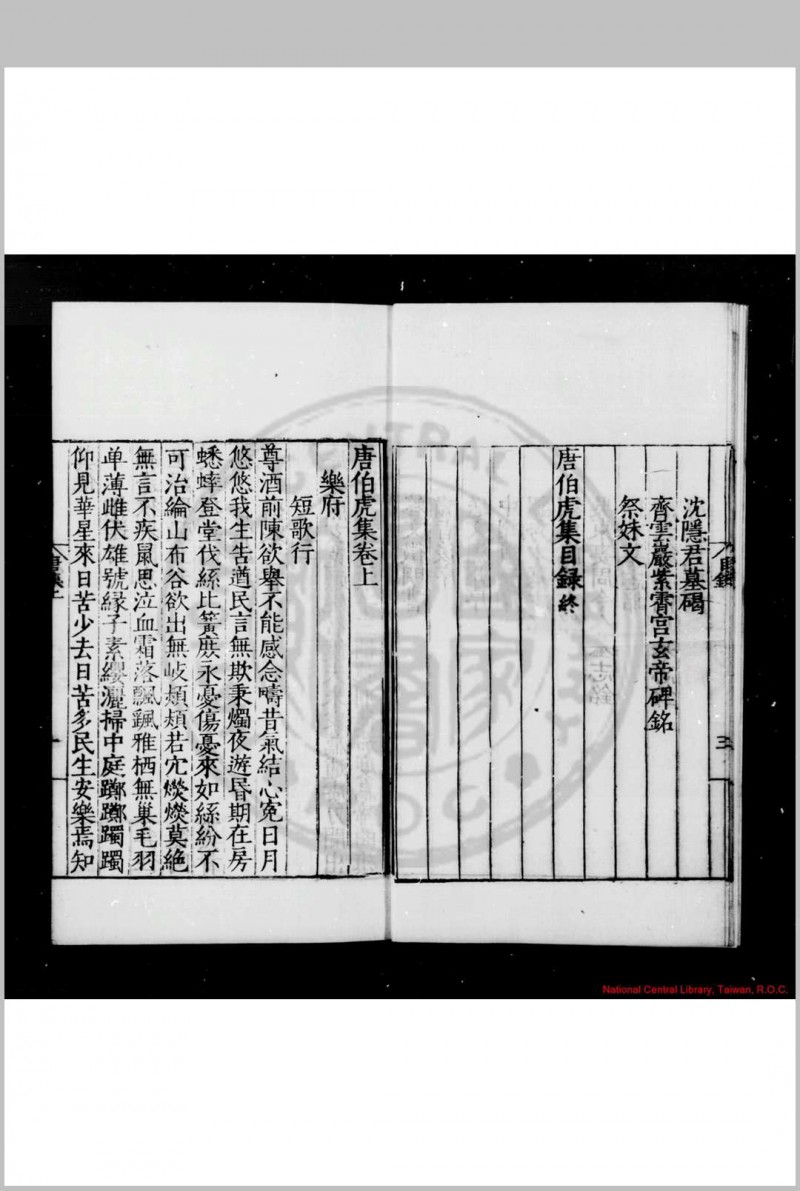 沈隱君墓碣
齊雲巖紫霄宫玄帝碑銘
祭妹文
唐伯虎集目録終
唐伯虎集卷上
樂府
短歌行
尊酒前陳欲舉不能感念疇昔氣結心寃日月
悠悠我生告遒民言無欺秉燭夜遊昬期在房
蟋蟀登堂伐絲比簧庶永憂傷憂來如絲紛不
可治綸山布谷欲出無岐頍頍若宂熒熒莫絶
無言不疾鼠思泣血霜落飄飄雅栖無巢毛羽
单薄雌伏雄號緣子素纓灑掃中庭躑躑躅躅
仰見華星來日苦少去日苦多民生安樂焉知
National Central Library, Taiwan, R.O.C.